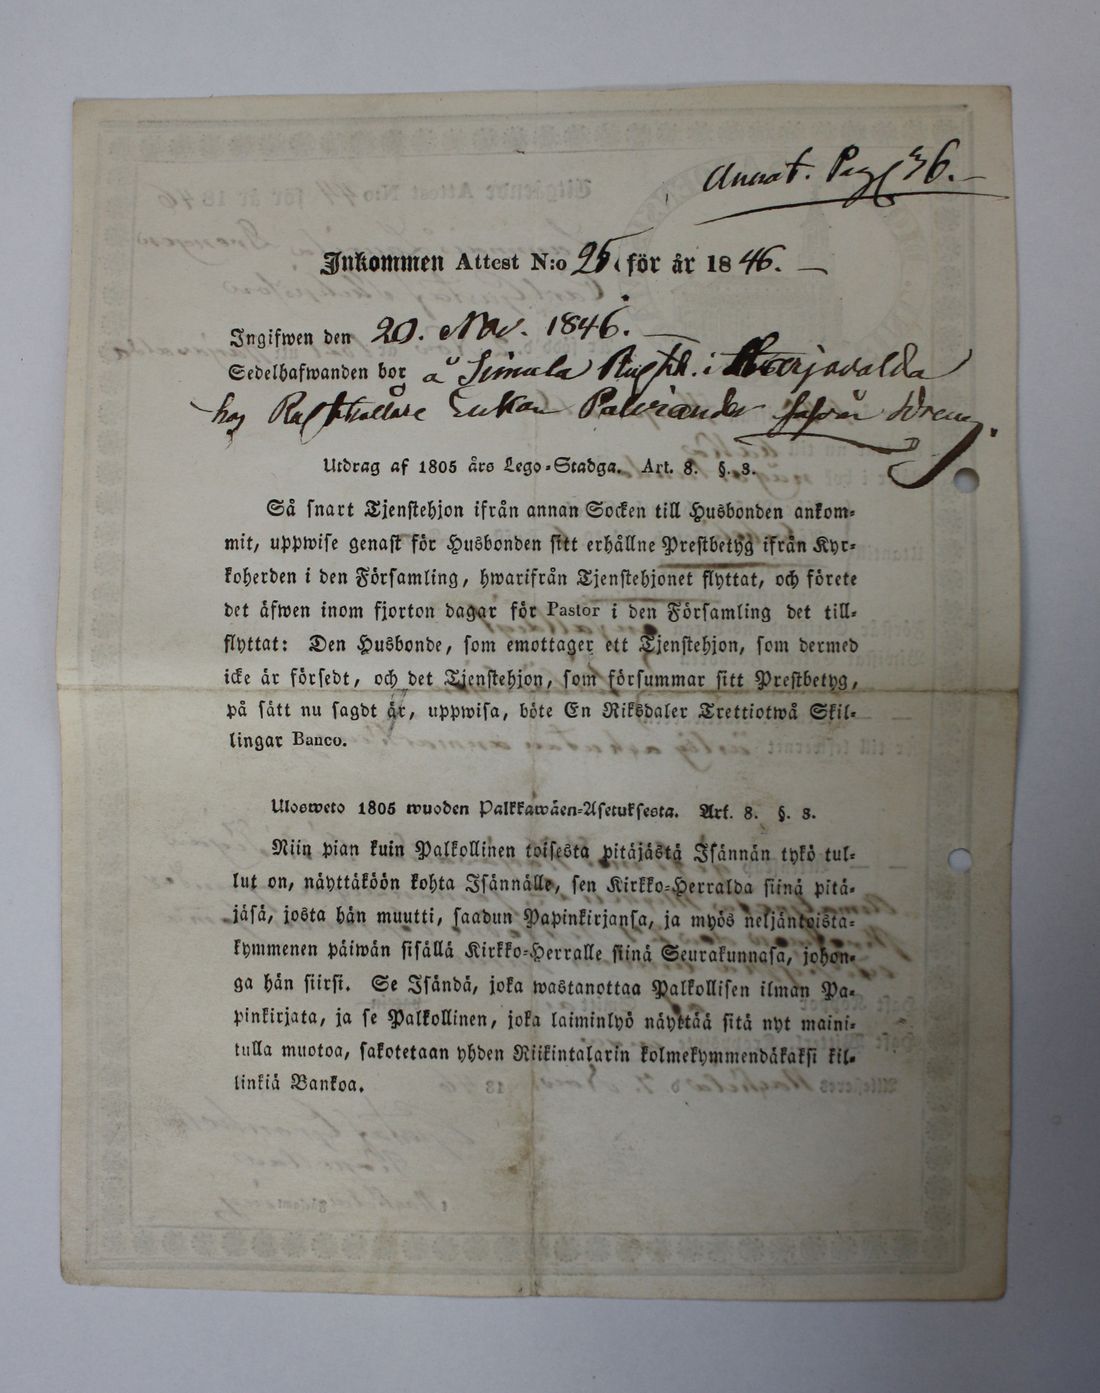 Annot. Pag 36.
Inkommen Attest N:o 25. för år 1846.
Ingifwen den 20. Nov. 1846.
Sedelhafwanden bor å Simula i Harjavalda
hos Rusthållare
Utdrag af 1805 års Lego-Stadga. Art. 8. §. 3.
Så snart Tjenstehjon ifrån annan Socken till Husbonden ankom-
mit, uppwise genast för Husbonden sitt erhållne Prestbetyg ifrån Kyr-
koherden i den Församling, hwarifrån Tjenstehjonet flyttat, och förete
det äfwen inom fjorton dagar för Pastor i den Församling det till-
flyttat: Den Husbonde, som emottager ett Tjenstehjon, som dermed
icke är försedt, och det Tjenstehjon, som försummar sitt Prestbetyg,
på sätt nu sagdt är, uppwisa, böte En Riksdaler Trettiotwå Skil-
lingar Banco.
Ulosweto 1805 wuoden Palkkawäen-Asetuksesta. Art. 8. §. 3.
Niin pian kuin Palkollinen toisesta pitäjästä Isännän tykö tul-
lut on, näyttäköön kohta Isännälle, sen Kirkko-Herralda siinä pitä-
jäsä, josta hän muutti, saadun Papinkirjansa, ja myös neljäntoista-
kymmenen päiwän sisällä Kirkko-Herralle siinä Seurakunnasa, johon-
ga hän siirsi. Se Isändä, joka wastanottaa Palkollisen ilman Pa-
pinkirjata, ja se Palkollinen, joka laiminlyö näyttää sitä nyt maini-
tulla muotoa, sakotetaan yhden Riikintalarin kolmekymmendäkaksi kil-
linkiä Bankoa.